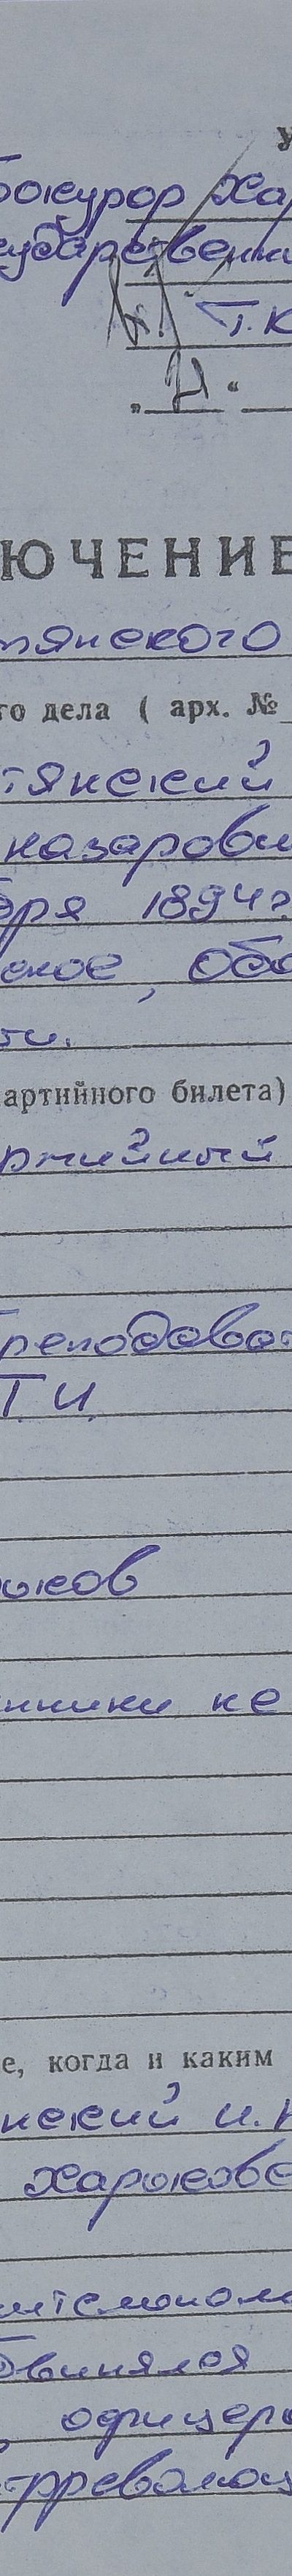 У
рокурор Хар
сударственн
Т.К
„ "
ЮЧЕНИЕ
тянского
го дела ( арх. №
тянский
назарови
бря 1894г
ское, обл
ти.
артийного билета)
ртийный
преподава
Т И.
рьков
нники не
е, когда и каким
нский И.Н
Харьковс
обвинялся
офицер
трреволюц